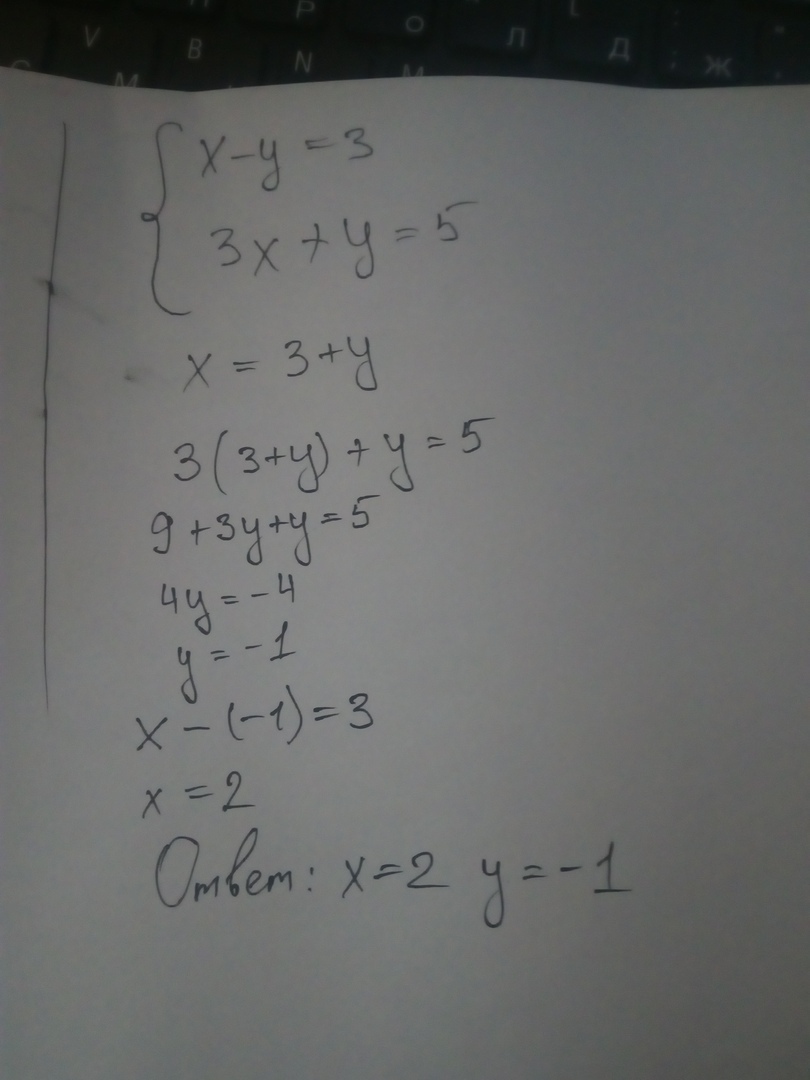 P
V B N M О Л Д ; Ж
x-y=3
3x+y=5
x=3+y
3(3+y)+y=5
9+3y+y=5
4y=-4
y=-1
x-(-1)=3
x=2
Ответ: x=2 y=-1